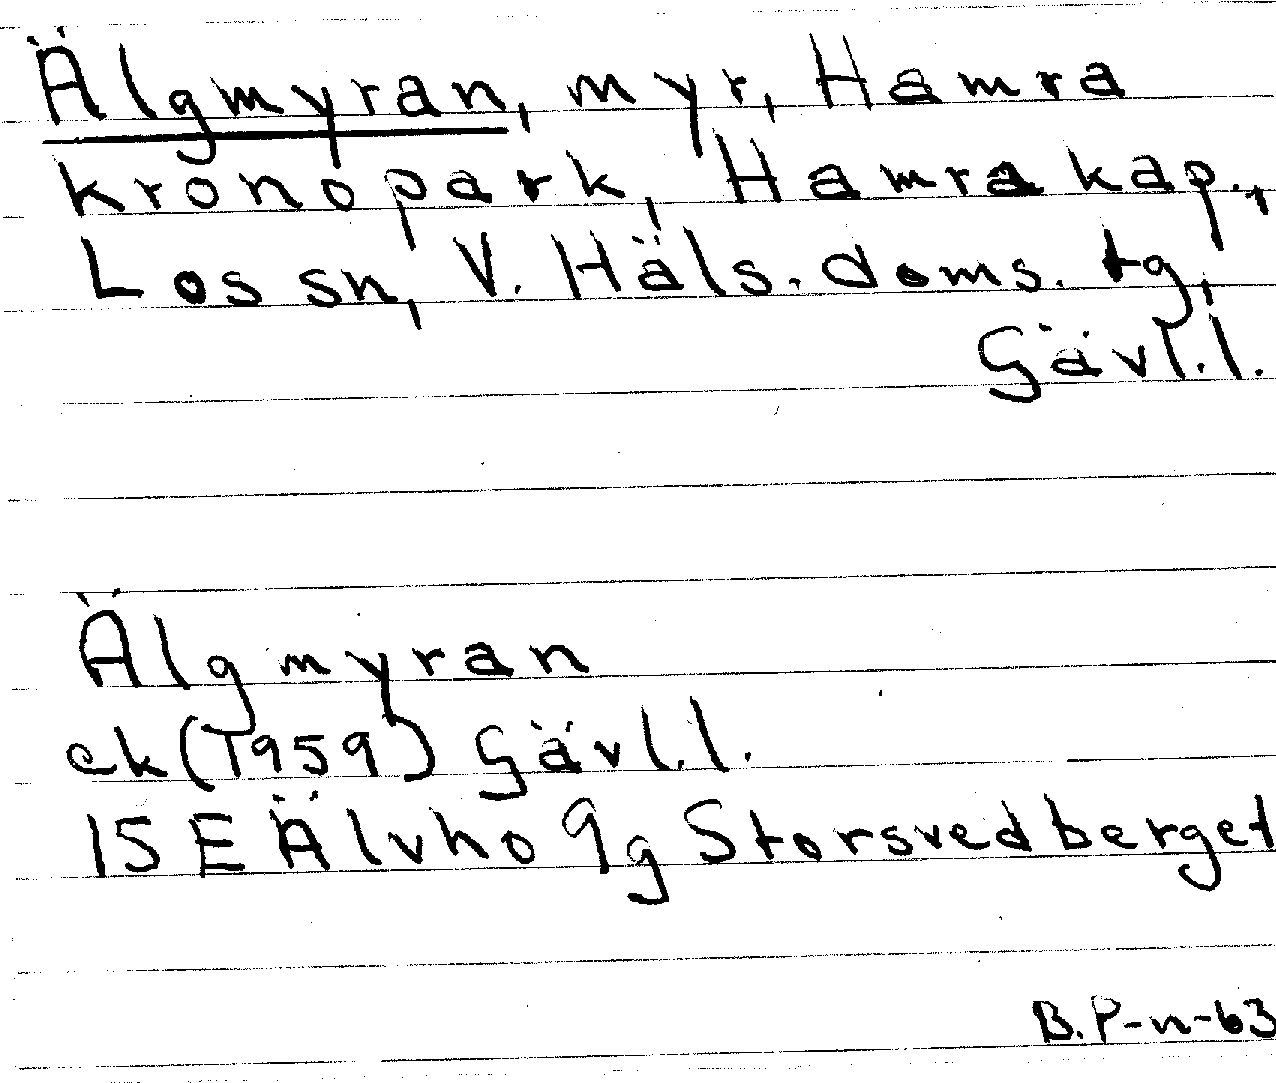 Älgmyran, myr, Hamra
kronopark, Hamra kap.,
Los sn, V. Häls. doms. tg,
Gävl.l.
Älgmyran
ek (1959) Gävl.l.
15 E Älvho 9g Storsvedberget
B. P-n-63